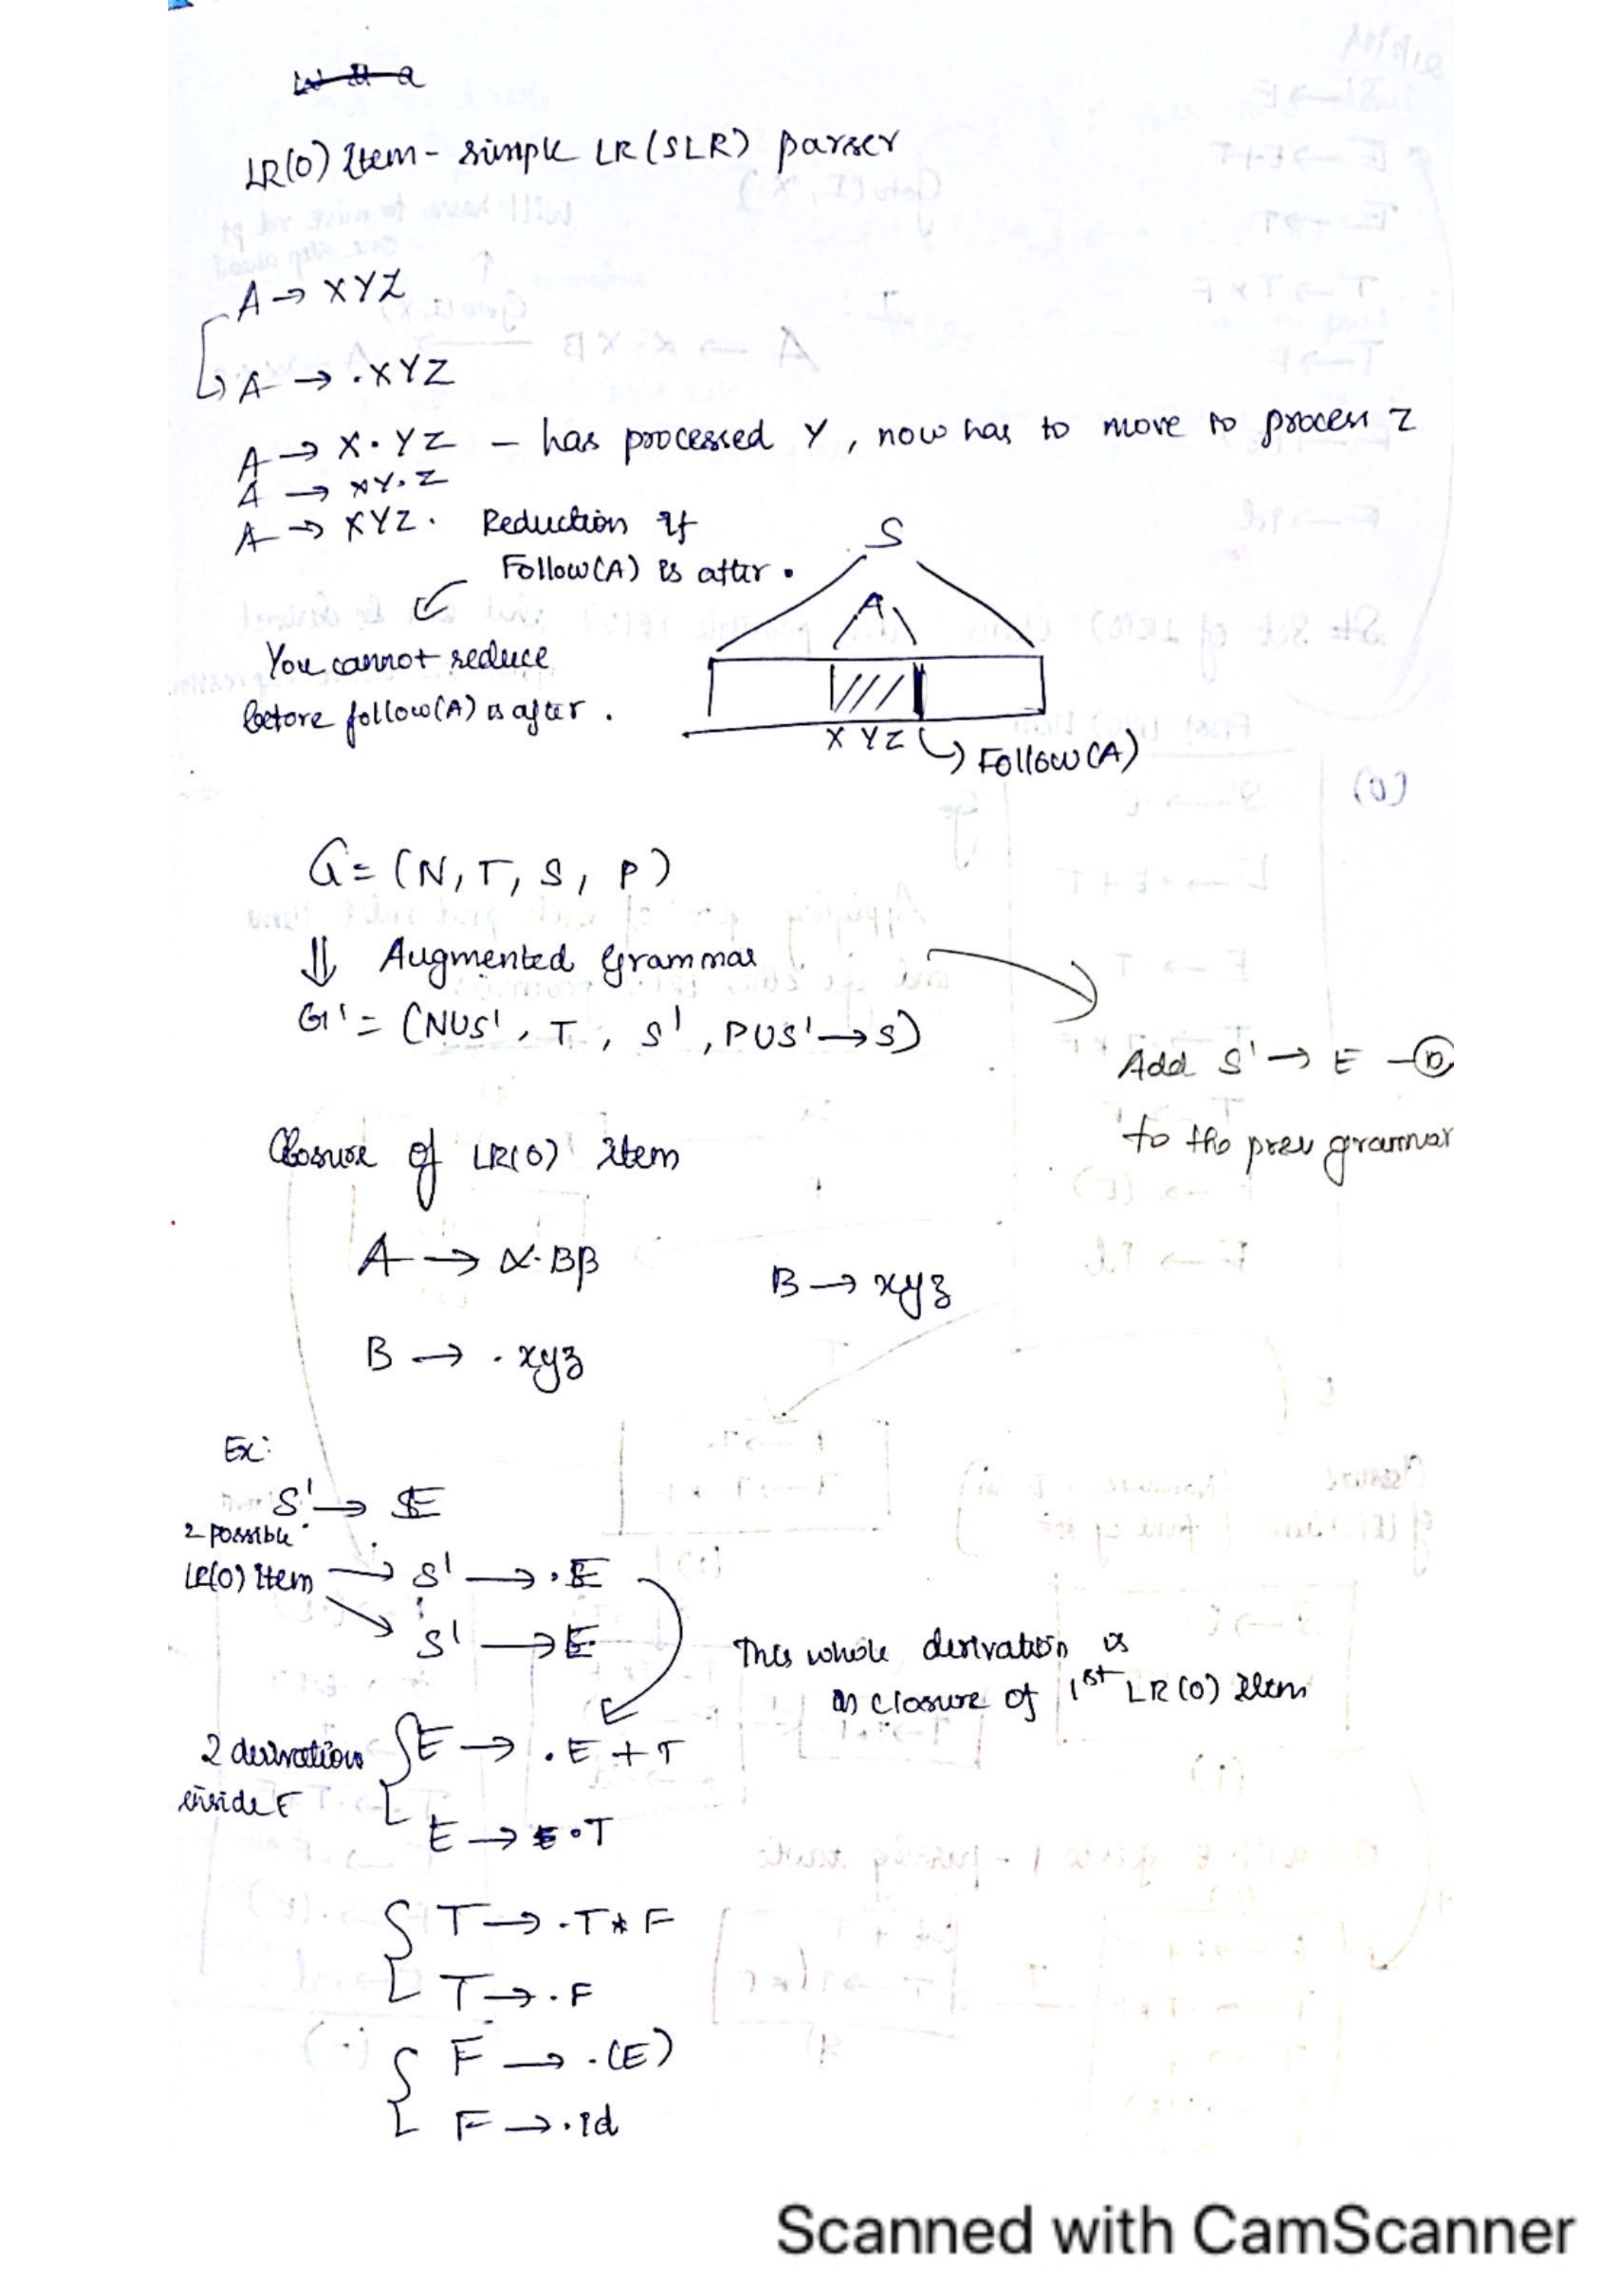 LR(0) Item - simple LR (SLR) parser
A → XYZ
A → .XYZ
A → X.YZ – has processed Y, now has to move to process Z
A → XY.Z
A → XYZ. Reduction if
Follow(A) is after .
S
A
You cannot reduce
before follow(A) is after .
X Y Z
Follow(A)
G = (N, T, S, P)
⇓ Augmented Grammar
G' = (NUS', T, S', PUS' → S)
Add S' → E –
to the prev grammar
Closure of LR(0) item
A → α.Bβ
B → xyz
B → .xyz
Ex:
S' → E
2 possible
LR(0) item → S' → .E
S' → E.
This whole derivation is
as closure of 1st LR(0) item
2 derivations
inside E
E → .E + T
E → .T
T → .T * F
T → .F
F → .(E)
F → .id
Scanned with CamScanner